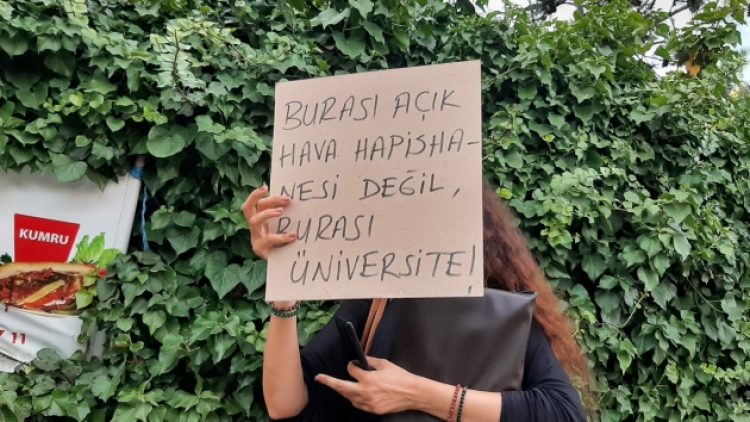 BURASI AÇIK
HAVA HAPİSHA-
NESİ DEĞİL,
BURASI
ÜNİVERSİTE!
KUMRU
11